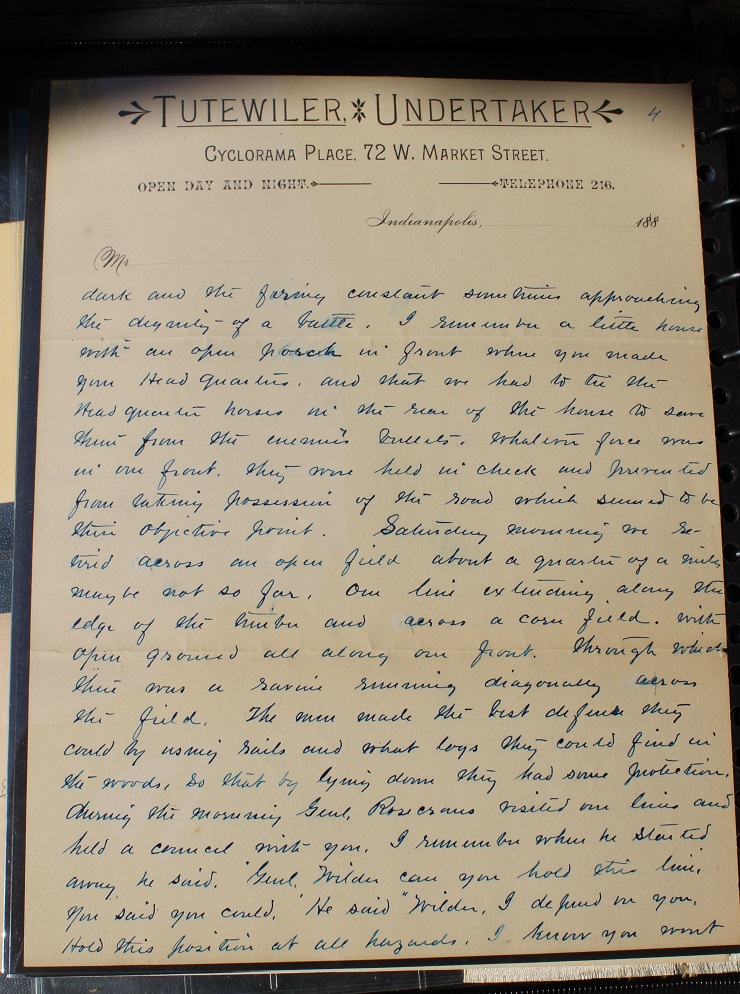 TUTEWILER, UNDERTAKER
4
CYCLORAMA PLACE. 72 W. MARKET STREET.
OPEN DAY AND NIGHT. TELEPHONE 216.
Indianapolis, 188
Mr.
dark and the firing constant sometimes approaching
the dignity of a battle. I remember a little house
with an open porch in front where you made
your Head quarters. and that we had to tie the
Head quarter horses in the rear of the house to save
them from the enemies bullets. Whatever force was
in our front. they were held in check and prevented
from taking possession of the road which seemed to be
their objective point. Saturday morning we re-
tired across an open field about a quarter of a mile
maybe not so far. Our line extending along the
edge of the timber and across a corn field. with
open ground all along our front. through which
there was a ravine running diagonally across
the field. The men made the best defense they
could by using rails and what logs they could find in
the woods, so that by lying down they had some protection.
during the morning Genl. Rosecrans visited our lines and
held a council with you. I remember when he started
away he said. "Genl. Wilder can you hold this line.
You said you could." He said "Wilder, I depend on you.
Hold this position at all hazards. I know you wont